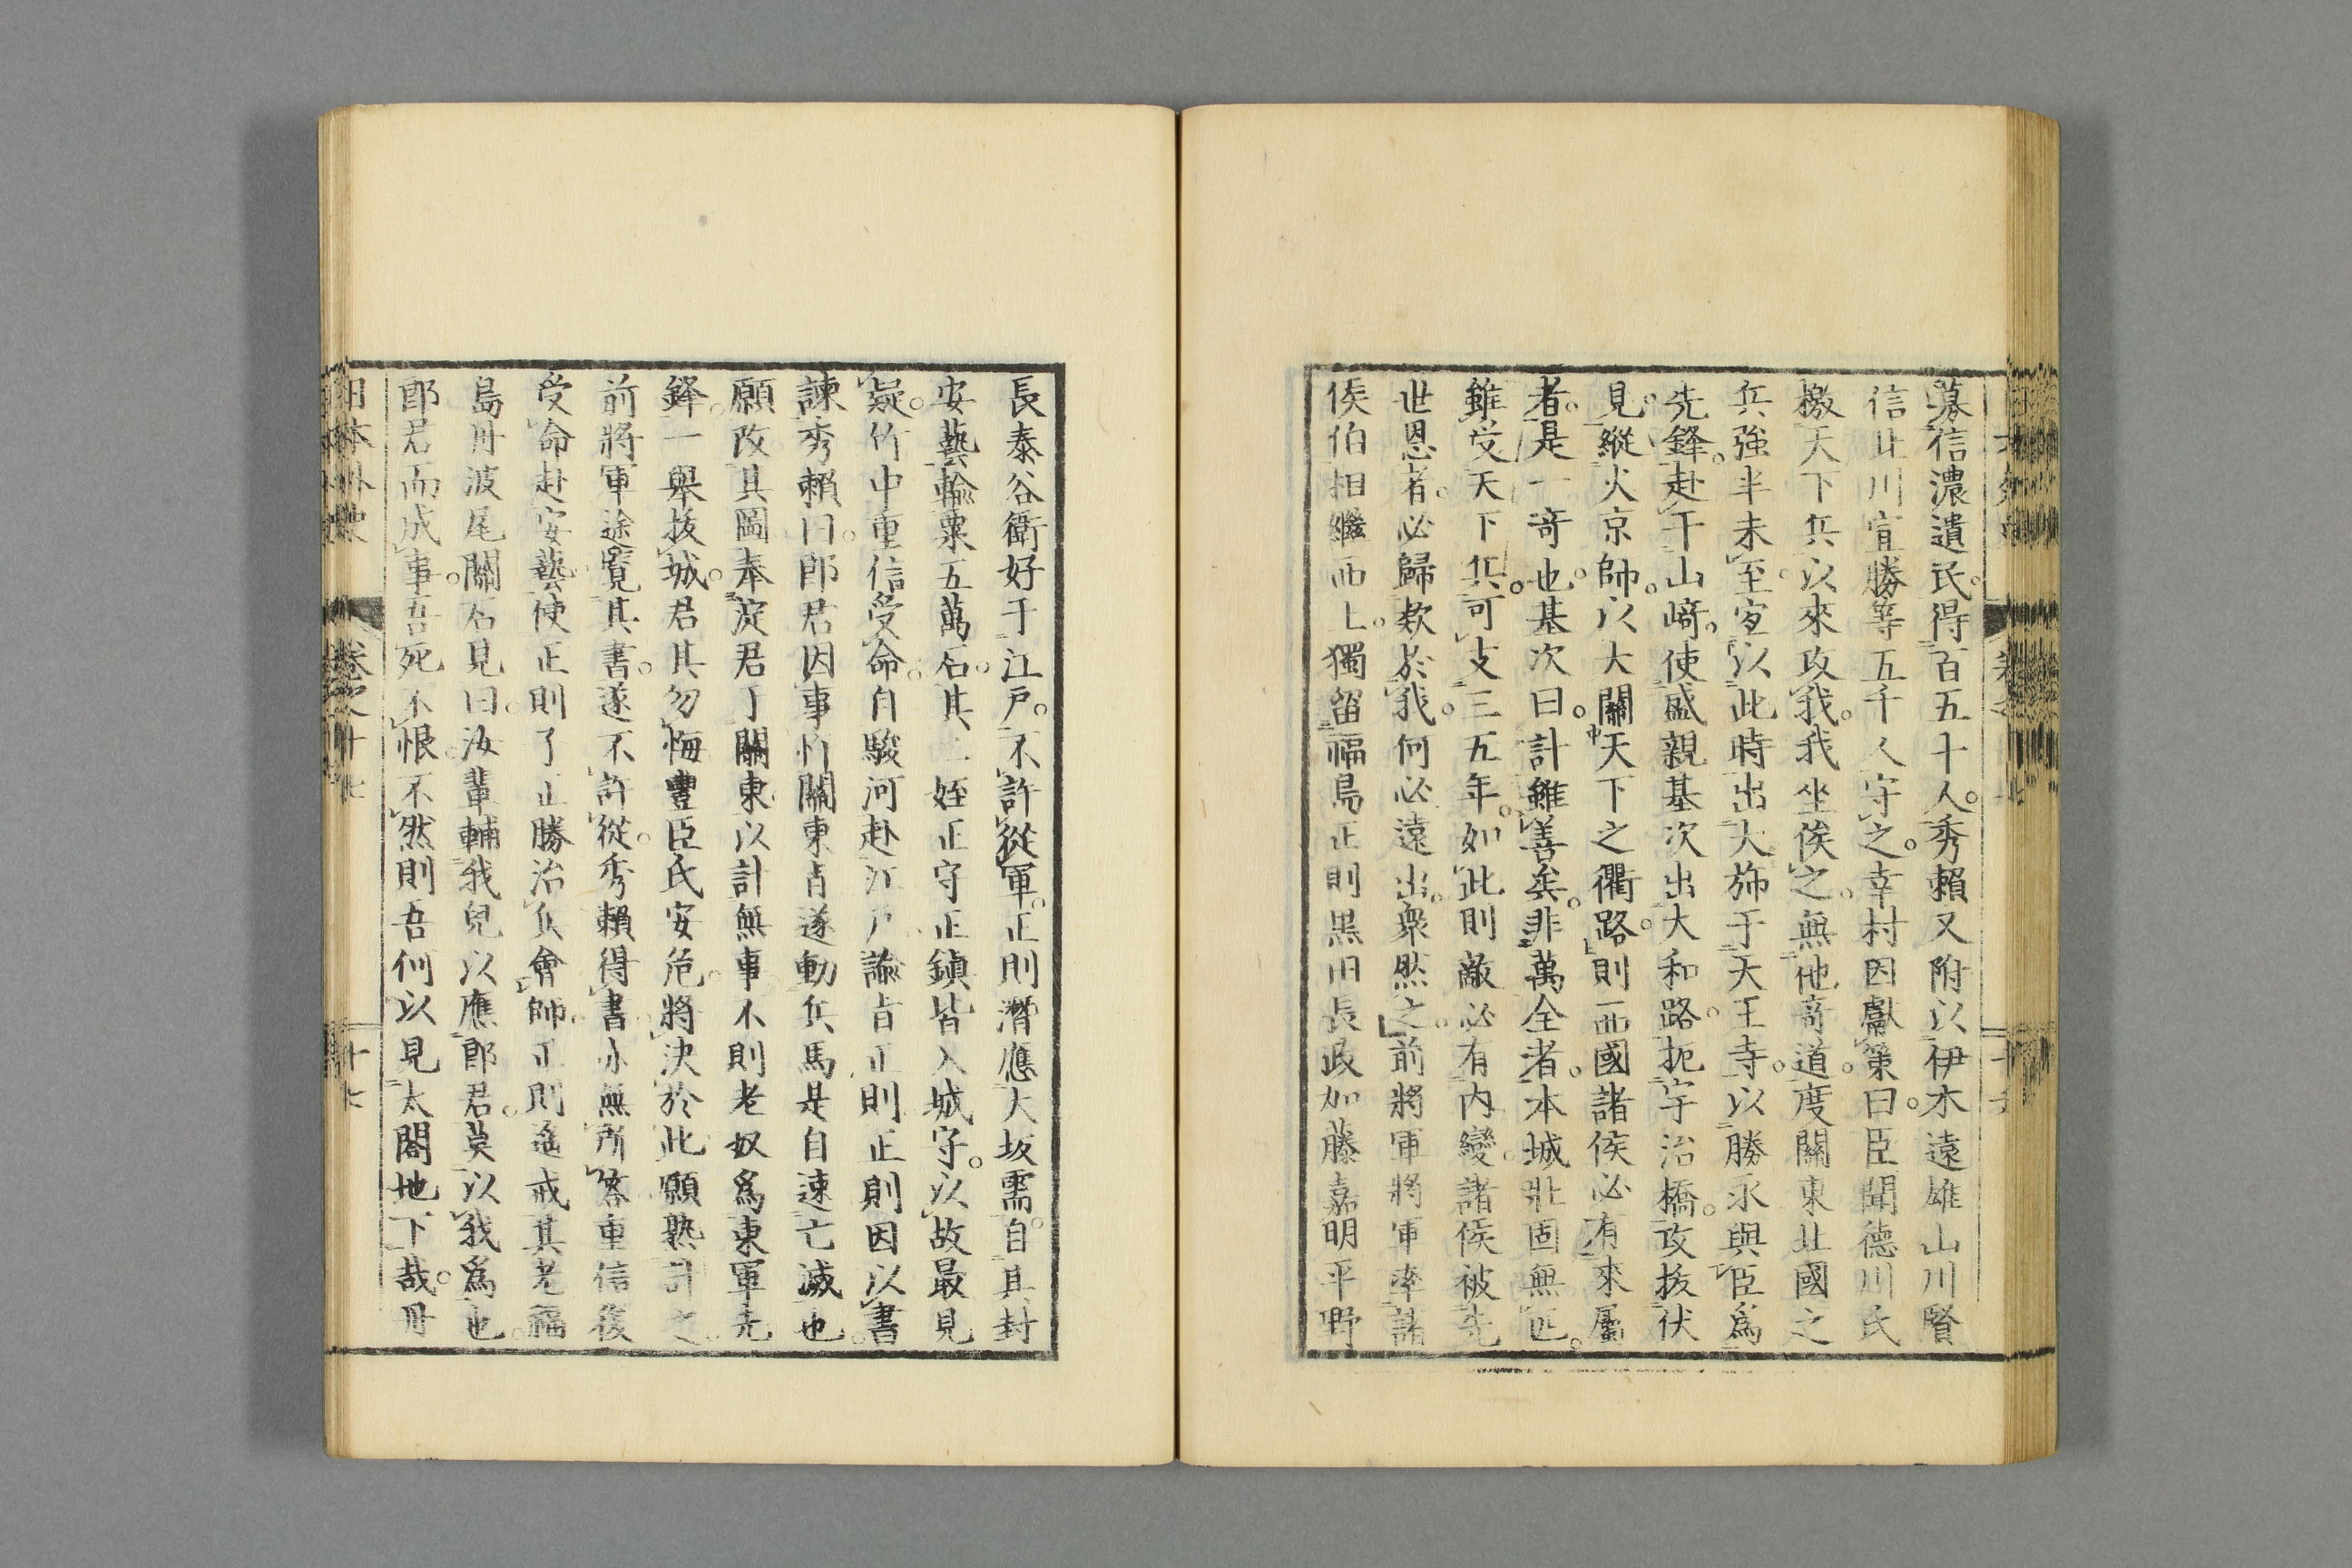 募信濃遺民。得百五十人。秀賴又附以伊木遠雄山川賢
信北川宣勝等五千人守之。幸村因獻策曰。臣聞德川氏
檄天下兵以來攻我。我坐俟之。無他奇道。度關東北國之
兵強半未至。宜以此時出大旆于天王寺。以勝永與臣爲
先鋒。赴于山崎。使盛親基次出大和路。扼宇治橋。攻拔伏
見。縱火京師。以大關天下之衢路。則西國諸侯必有來屬
者。是一奇也。基次曰。計雖善矣。非萬全者。本城壯固無匹。
雖受天下兵。可支三五年。如此則敵必有內變。諸侯被先
世恩者。必歸欵於我。何必遠出。衆然之。前將軍將軍率諸
侯伯相繼西上。獨留福島正則黑田長政加藤嘉明平野
長泰谷衛好于江戶。不許從軍。正則潛應大坂需。自其封
安藝輸粟五萬石。其二姪正守正鎮皆入城守。以故最見
疑。竹中重信受命。自駿河赴江戶。諭旨正則。正則因以書
諫秀賴曰。郎君因事忤關東旨。遂動兵馬。是自速亡滅也。
願改其圖。奉淀君于關東。以計無事。不則老奴爲東軍先
鋒。一舉拔城。君其勿悔。豐臣氏安危。將決於此。願熟計之。
前將軍途覽其書。遂不許從。秀賴得書亦無所答。重信復
受命赴安藝。使正則子正勝治兵會師。正則遙戒其老福
島丹波尾關石見曰。汝輩輔我兒以應郎君。莫以我爲也。
郎君而成事。吾死不恨。不然則吾何以見太閤地下哉。丹
日本外史 卷之十七 十七